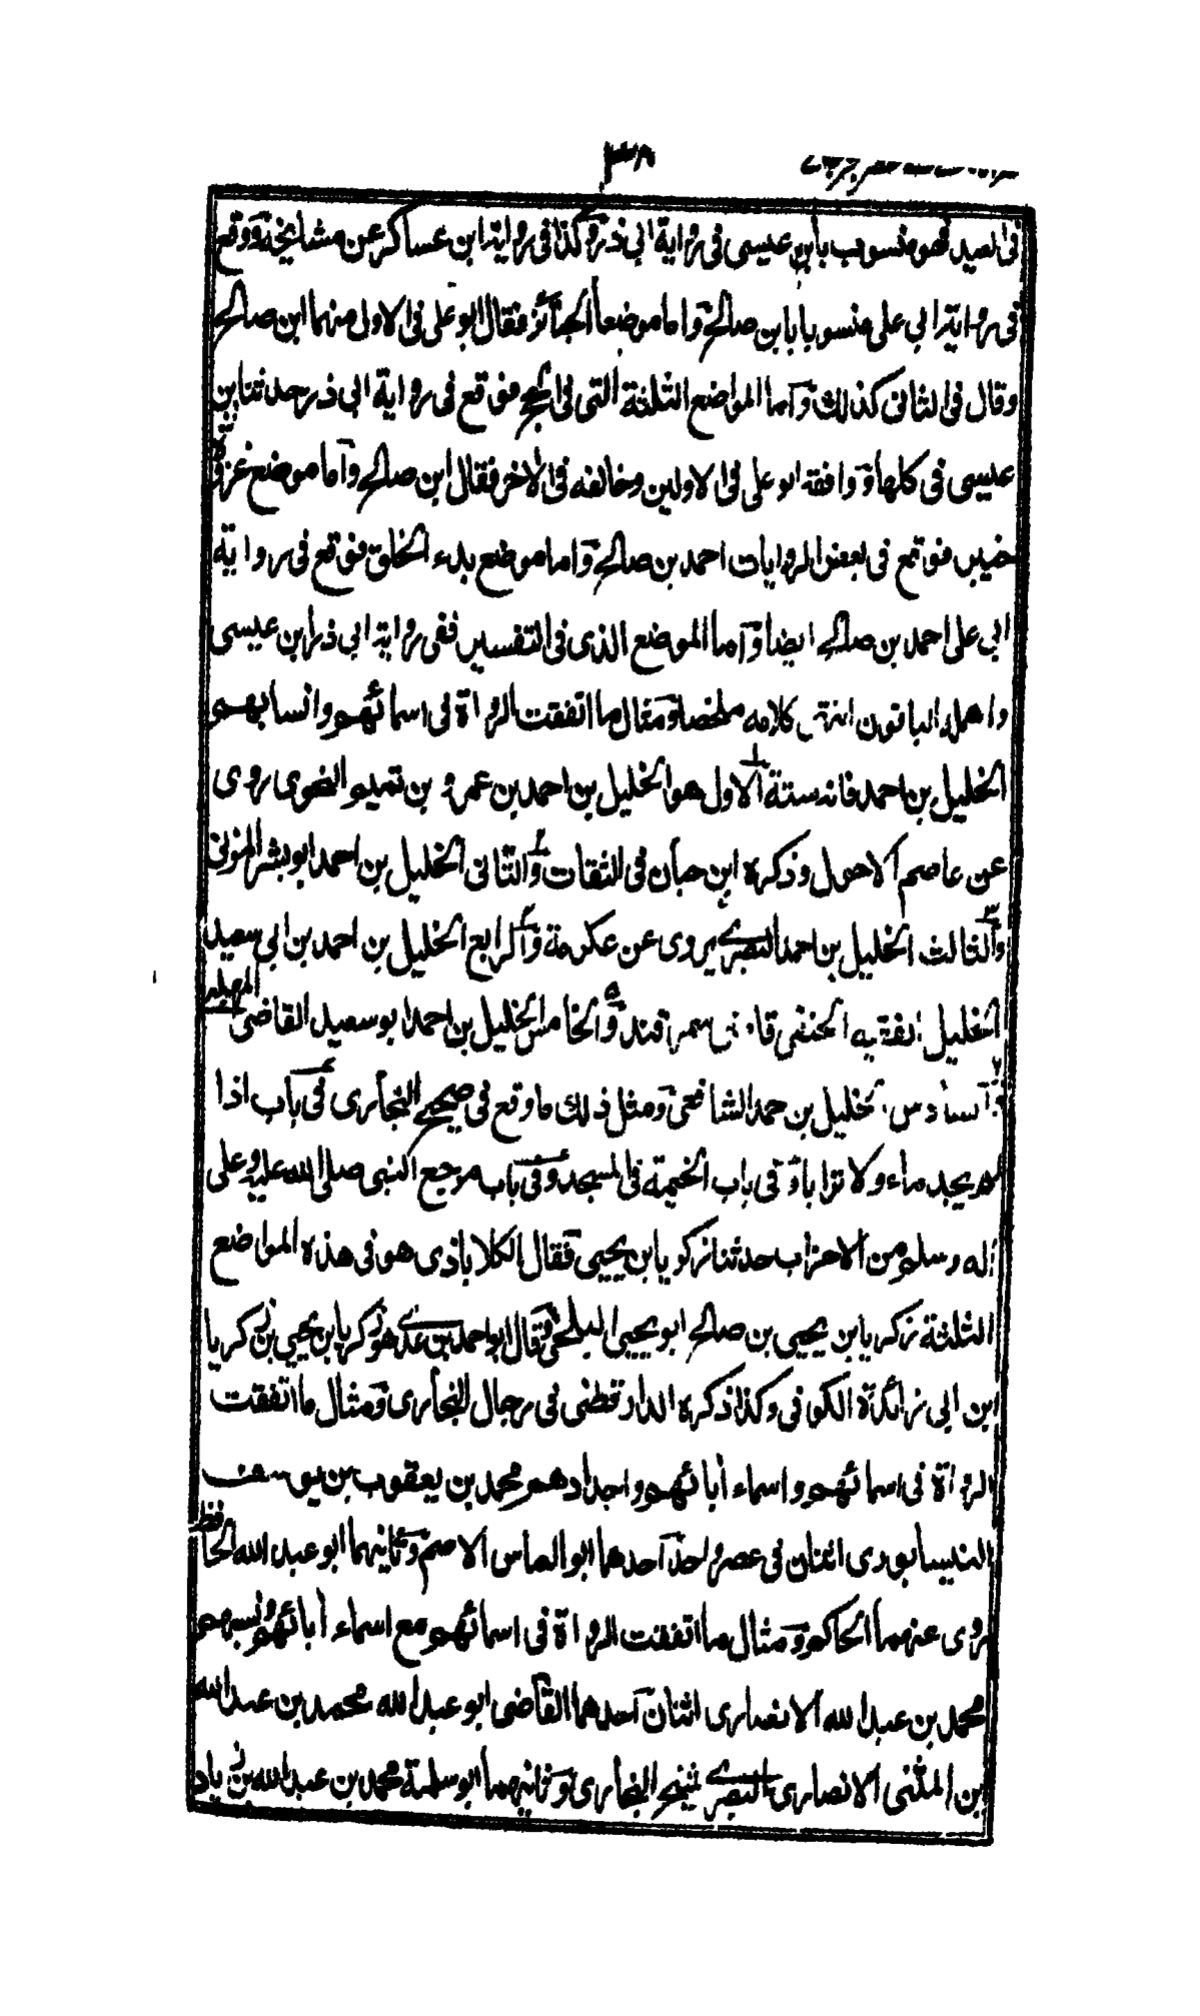 ٣٨
في العيد فهو منسوب بابن عيسى في رواية ابي ذر وكذا في رواية ابن عساكر عن مشايخه ووقع
في رواية ابي علي منسوبا بابن صالح واما موضعا الجنائز فقال ابو علي في الاول منهما ابن صالح
وقال في الثاني كذلك واما المواضع الثلثة التي في الحج فوقع في رواية ابي ذر حدثنا بن
عيسى في كلها ووافقه ابو علي في الاولين وخالفه في الاخر فقال ابن صالح واما موضع غزوة
فوقع في بعض الروايات احمد بن صالح واما موضع بدء الخلق فوقع في رواية
ابي علي احمد بن صالح ايضا واما الموضع الذي في التفسير ففي رواية ابي ذر ابن عيسى
واهمله الباقون انتهى كلامه ملخصا ومثال ما اتفقت الرواة في اسمائهم وانسابهم
الخليل بن احمد فانه ستة الاول هو الخليل بن احمد بن عمرو بن تميم النحوي روى
عن عاصم الاحول وذكره ابن حبان في الثقات والثاني الخليل بن احمد ابو بشر المزني
والثالث الخليل بن احمد البصري يروى عن عكرمة والرابع الخليل بن احمد بن ابي سعيد
الخليل الفقيه الحنفي قاضي سمرقند والخامس الخليل بن احمد ابو سعيد القاضي المهلبي
والسادس الخليل بن احمد الشافعي ومثل ذلك ما وقع في صحيح البخاري في باب اذا
لم يجد ماء ولا ترابا وفي باب الخيمة في المسجد وفي باب مرجع النبي صلى الله عليه وعلى
اله وسلم من الاحزاب حدثنا زكريا بن يحيى فقال الكلاباذي هو في هذه المواضع
الثلثة زكريا بن يحيى بن صالح ابو يحيى البلخي وقال ابو احمد بن عدي هو زكريا بن يحيى بن زكريا
ابن ابي زائدة الكوفي وكذا ذكره الدارقطني في رجال البخاري ومثال ما اتفقت
الرواة في اسمائهم واسماء أبائهم واجدادهم محمد بن يعقوب بن يوسف
النيسابوري اثنان في عصر واحد احدهما ابو العباس الاصم وثانيهما ابو عبد الله الحافظ
روى عنهما الحاكم ومثال ما اتفقت الرواة في اسمائهم مع اسماء أبائهم ونسبهم
محمد بن عبد الله الانصاري اثنان احدهما القاضي ابو عبد الله محمد بن عبد الله
ابن المثنى الانصاري البصري شيخ البخاري وثانيهما ابو سلمة محمد بن عبد الله بن زياد